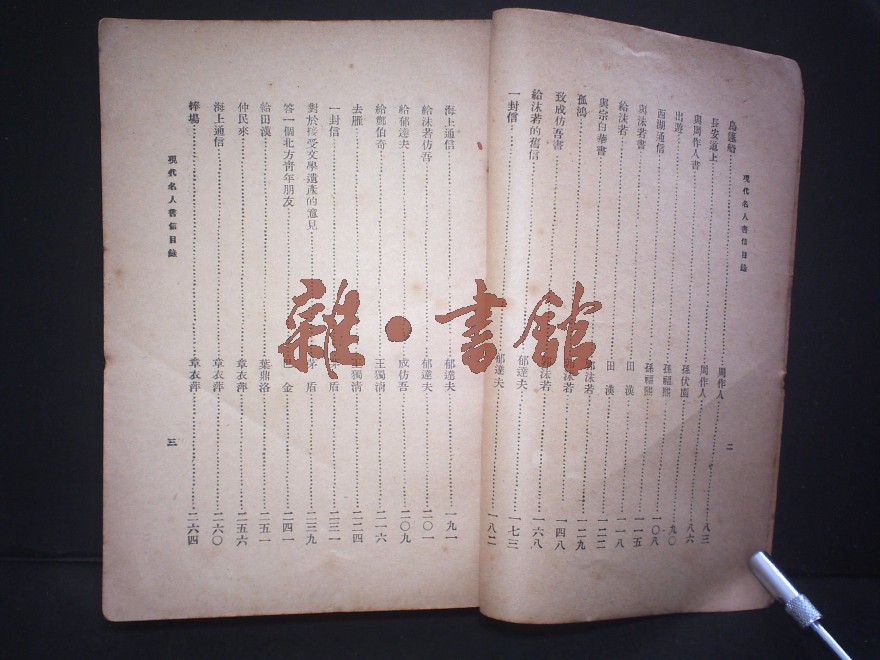 現代名人書信目錄 二
烏篷船 周作人 八三
長安道上 周作人 八六
與周作人書 孫伏園 九〇
出遊 孫福熙 一〇八
西湖通信 孫福熙 一一五
與沫若書 田漢 一一八
給沫若 田漢 一二二
與宗白華書 郭沫若 一二九
孤鴻 郭沫若 一四八
致成仿吾書 郭沫若 一六八
給沫若的舊信 郁達夫 一七三
一封信 郁達夫 一八二
海上通信 郁達夫 一九一
給沫若仿吾 郁達夫 二〇一
給郁達夫 成仿吾 二〇九
給鄭伯奇 王獨清 二一六
去雁 王獨清 二二四
一封信 茅盾 二三一
對於接受文學遺產的意見 茅盾 二三九
答一個北方青年朋友 巴金 二四一
給田漢 葉鼎洛 二五一
仲民來 章衣萍 二五六
海上通信 章衣萍 二六〇
章衣萍 二六四
現代名人書信目錄 三
雜・書館